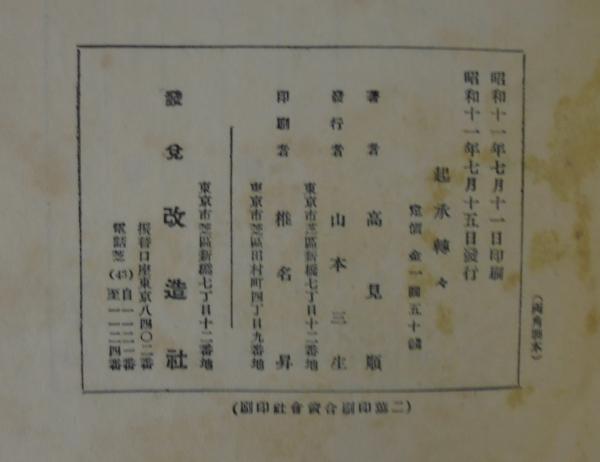 昭和十一年七月十一日印刷
昭和十一年七月十五日發行
起承轉々
定價 金一圓五十錢
著者 高見順
發行者 山本三生
東京市芝區新橋七丁目十二番地
印刷者 椎名昇
東京市芝區田村町四丁目九番地
東京市芝區新橋七丁目十二番地
發兌 改造社
振替口座東京八四〇二番
電話芝(43)自一一二一番至一一二四番
(兩角製本)
(二葉印刷合資會社印刷)